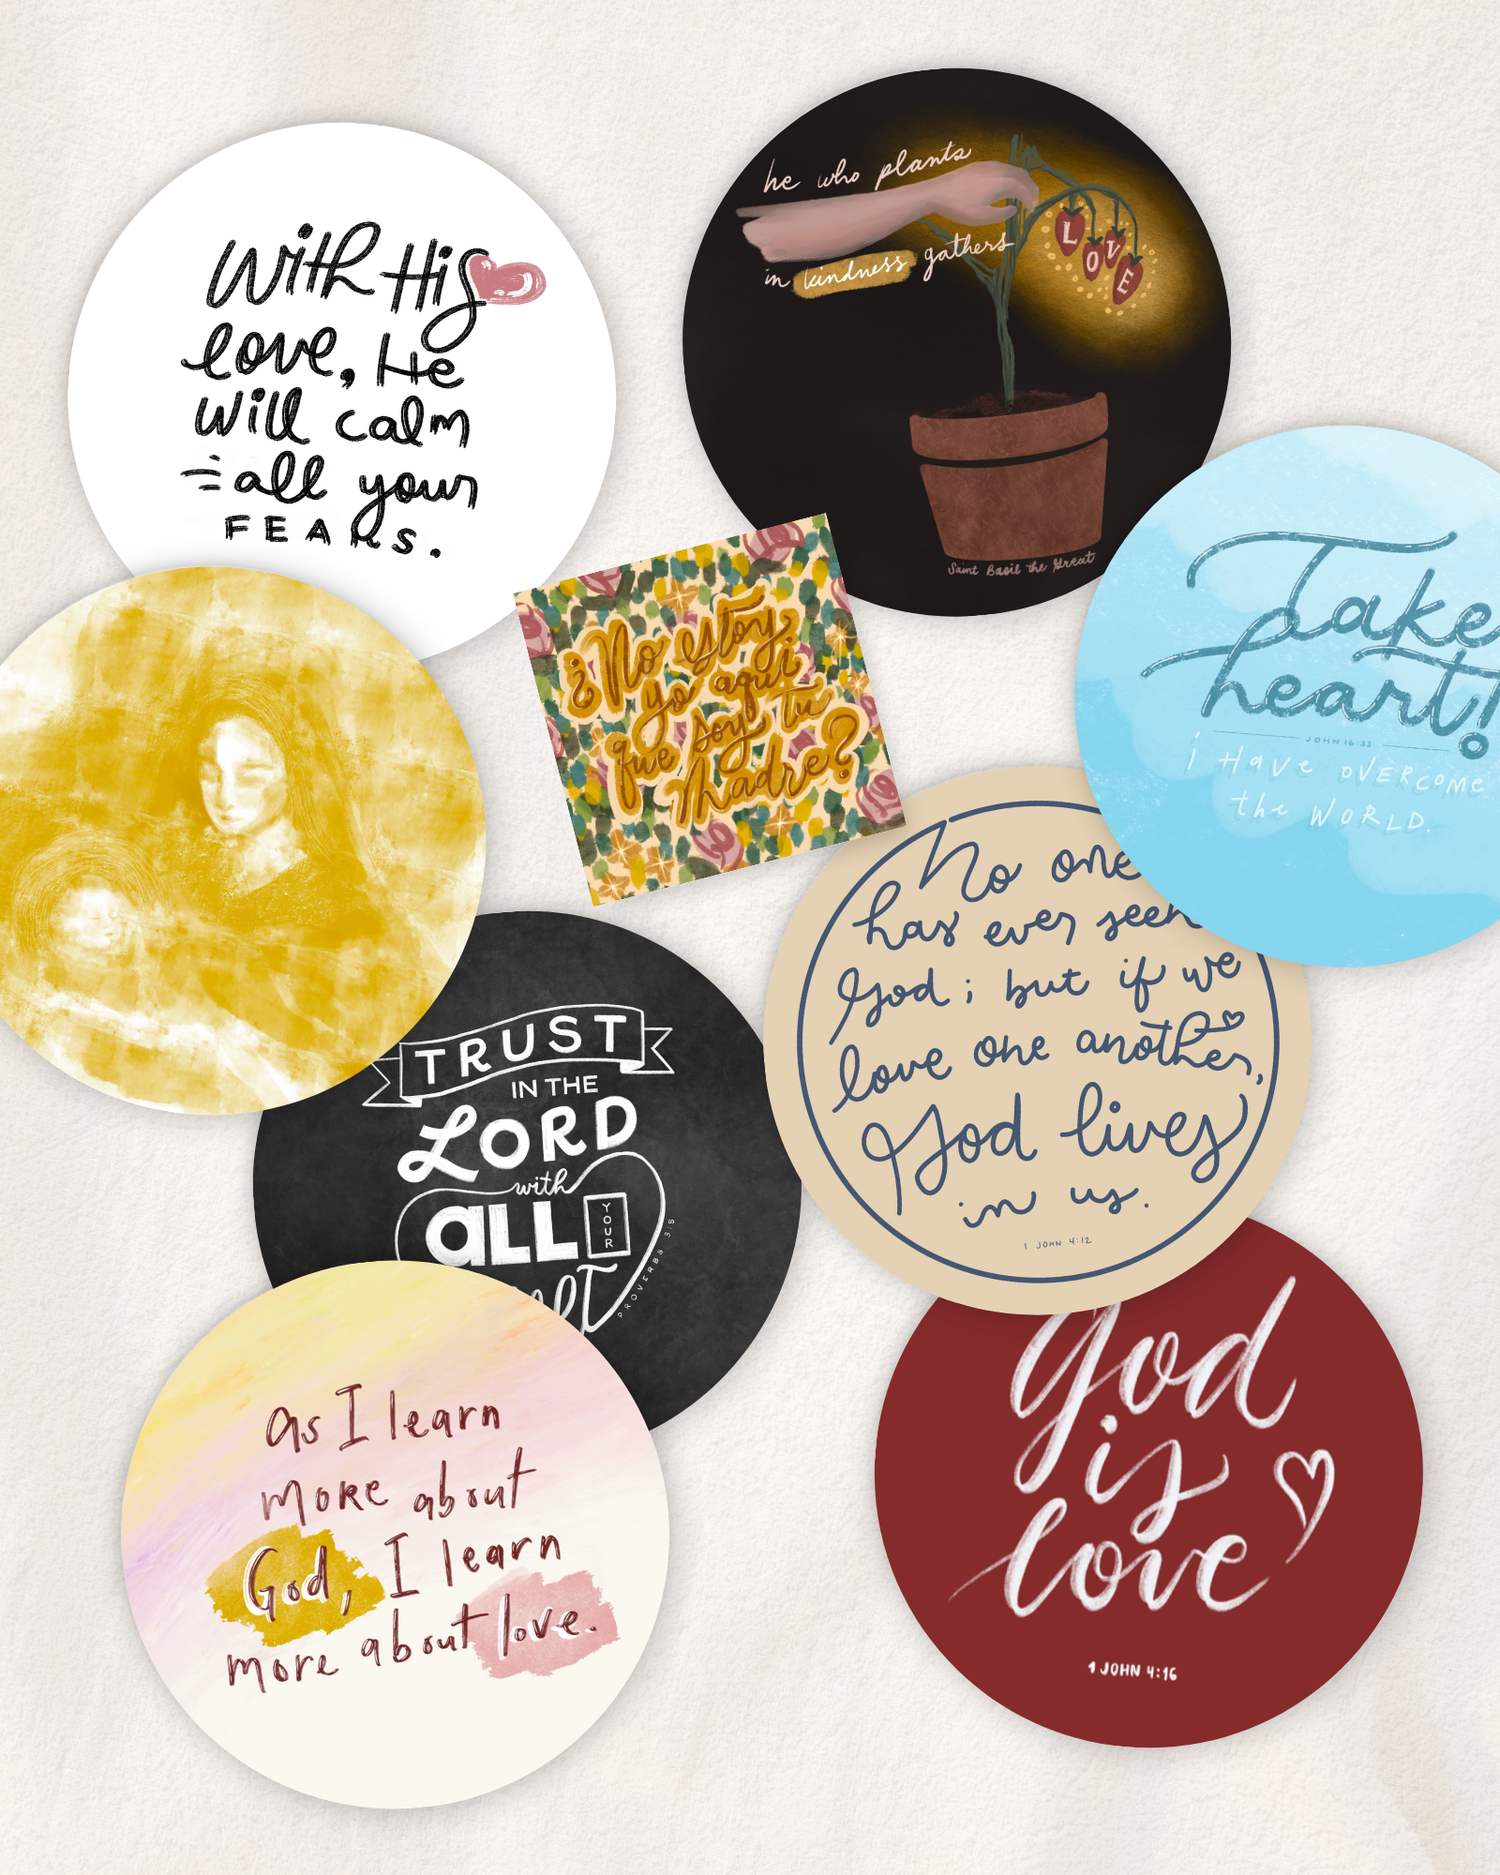 With His
love, He
will calm
all your
FEARS.
he who plants
in kindness gathers
L
O
V
E
Saint Basil the Great
Take
heart!
JOHN 16:33
i Have OVERCOME
the WORLD.
¿No estoy
yo aquí
que soy tu
Madre?
No one
has ever seen
God; but if we
love one another,
God lives
in us.
1 JOHN 4:12
TRUST
IN THE
LORD
with
ALL YOUR
PROVERBS 3:5
God
is
love
1 JOHN 4:16
as I learn
more about
God, I learn
more about love.